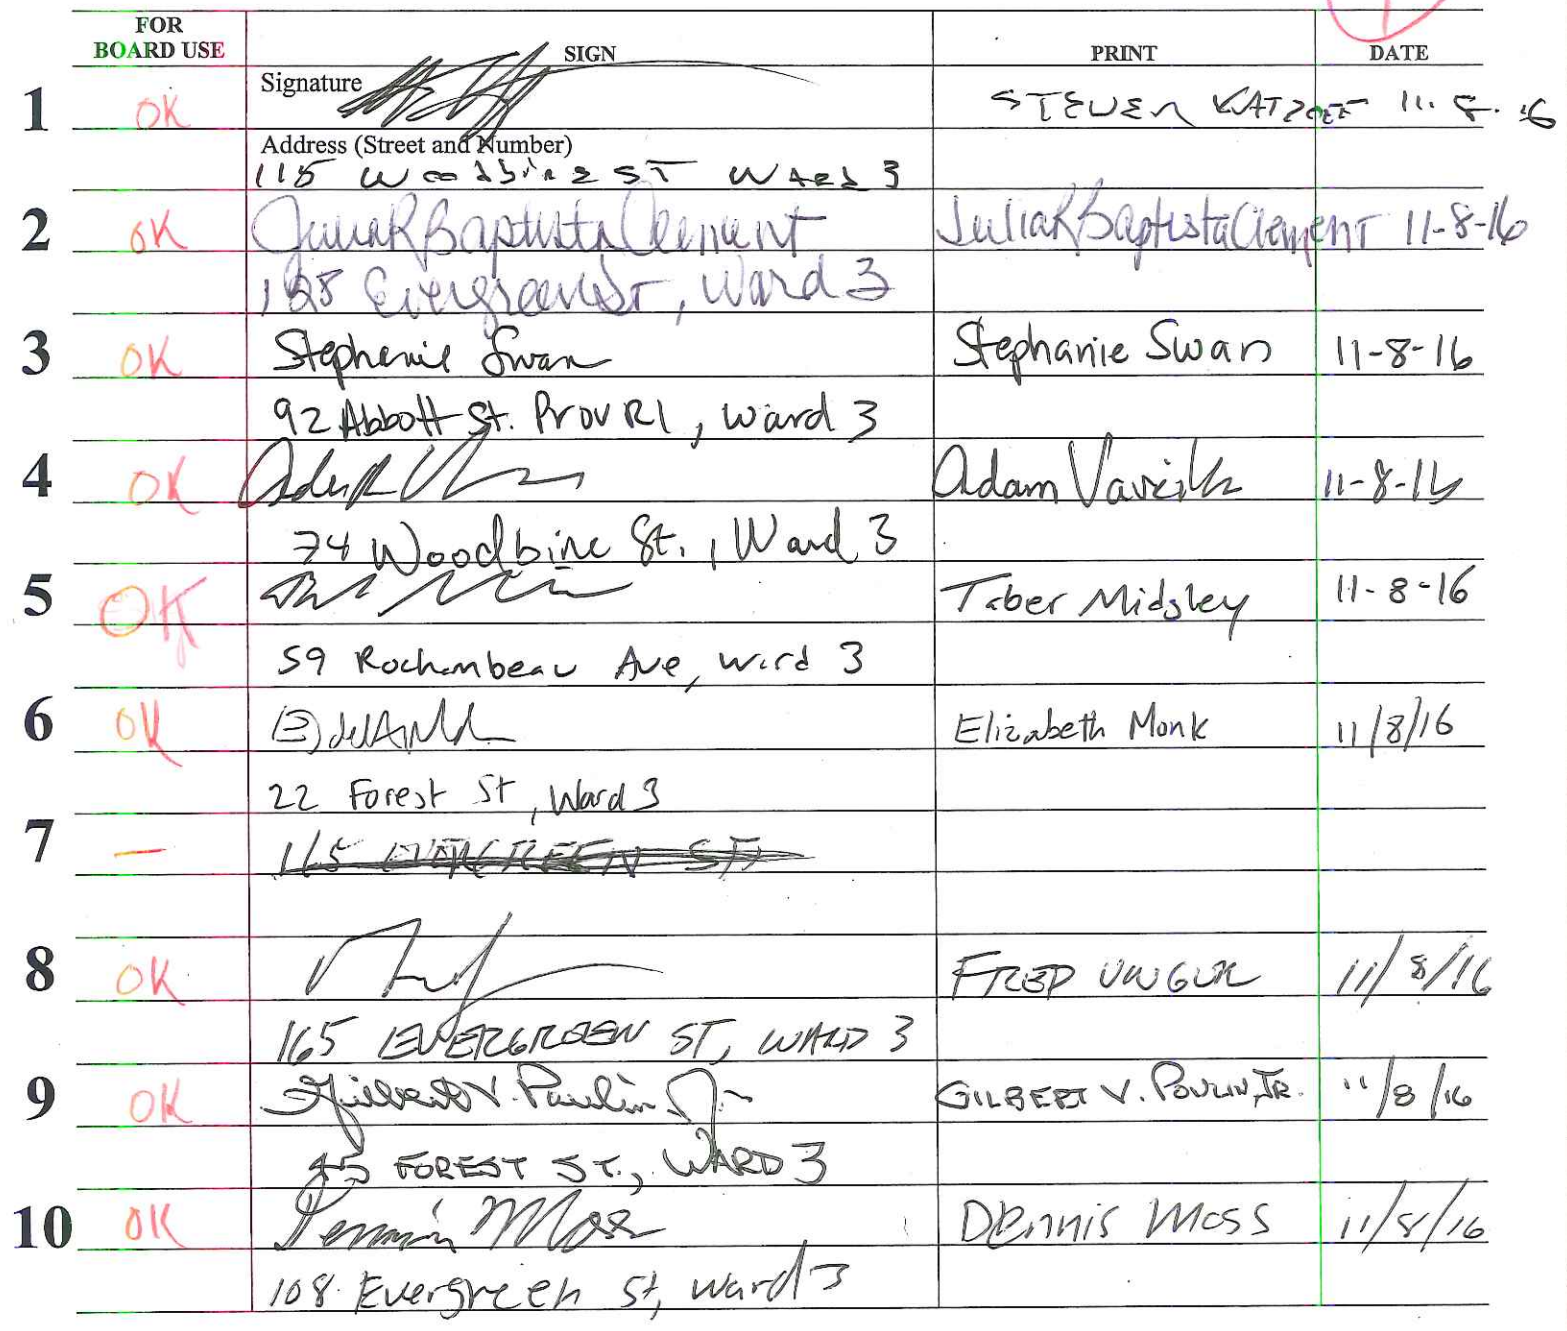 FOR
BOARD USE SIGN PRINT DATE
1 OK Signature STEVEN KATZOFF 11. 8. 16
Address (Street and Number)
115 Woodbine ST Ward 3
2 OK Julia R Baptista Clement Julia R Baptista Clement 11-8-16
128 Evergreen St, Ward 3
3 OK Stephanie Swan Stephanie Swan 11-8-16
92 Abbott St. Prov RI, Ward 3
4 OK Adam 11-8-16
74 Woodbine St., Ward 3
5 OK Taber Midgley 11-8-16
59 Rochambeau Ave, Ward 3
6 OK Elizabeth Monk 11/8/16
22 Forest St, Ward 3
7 — 165 EVERGREEN ST,
8 OK FRED UNGER 11/8/16
165 EVERGREEN ST, WARD 3
9 OK Gilbert V. Poulin Jr GILBERT V. POULIN, JR. 11/8/16
45 FOREST ST., WARD 3
10 OK Dennis Moss Dennis Moss 11/8/16
108 Evergreen St, Ward 3